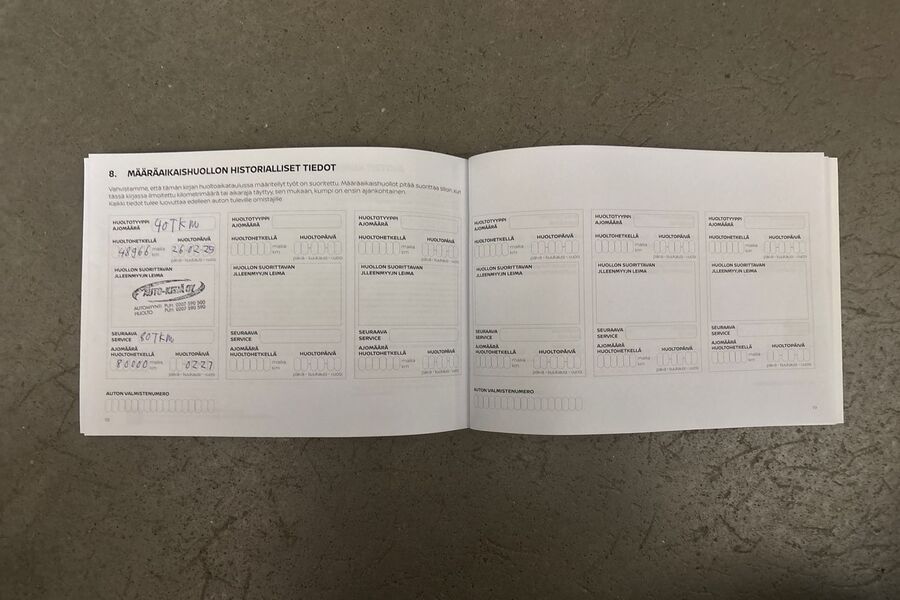 8. MÄÄRÄAIKAISHUOLLON HISTORIALLISET TIEDOT
Vahvistamme, että tämän kirjan huoltoaikataulussa määritellyt työt on suoritettu. Määräaikaishuollot pitää suorittaa silloin, kun
tässä kirjassa ilmoitettu kilometrimäärä tai aikaraja täyttyy, sen mukaan, kumpi on ensin ajankohtainen.
Kaikki tiedot tulee luovuttaa edelleen auton tuleville omistajille.
HUOLTOTYYPPI
AJOMÄÄRÄ 40TKM
HUOLTOHETKELLÄ HUOLTOPÄIVÄ
48966 mailia km 26-02-25
päivä - kuukausi - vuosi
HUOLLON SUORITTAVAN
JLLEENMYYJN LEIMA
AUTO-KEHÄ OY
AUTOMYYNTI PUH. 0207 590 500
HUOLTO PUH. 0207 590 590
SEURAAVA
SERVICE 80TKM
AJOMÄÄRÄ
HUOLTOHETKELLÄ HUOLTOPÄIVÄ
80000 mailia km 02-27
päivä - kuukausi - vuosi
HUOLTOTYYPPI
AJOMÄÄRÄ
HUOLTOHETKELLÄ HUOLTOPÄIVÄ
mailia km
päivä - kuukausi - vuosi
HUOLLON SUORITTAVAN
JLLEENMYYJN LEIMA
SEURAAVA
SERVICE
AJOMÄÄRÄ
HUOLTOHETKELLÄ HUOLTOPÄIVÄ
mailia km
päivä - kuukausi - vuosi
HUOLTOTYYPPI
AJOMÄÄRÄ
HUOLTOHETKELLÄ HUOLTOPÄIVÄ
mailia km
päivä - kuukausi - vuosi
HUOLLON SUORITTAVAN
JLLEENMYYJN LEIMA
SEURAAVA
SERVICE
AJOMÄÄRÄ
HUOLTOHETKELLÄ HUOLTOPÄIVÄ
mailia km
päivä - kuukausi - vuosi
AUTON VALMISTENUMERO
HUOLTOTYYPPI
AJOMÄÄRÄ
HUOLTOHETKELLÄ HUOLTOPÄIVÄ
mailia km
päivä - kuukausi - vuosi
HUOLLON SUORITTAVAN
JLLEENMYYJN LEIMA
SEURAAVA
SERVICE
AJOMÄÄRÄ
HUOLTOHETKELLÄ HUOLTOPÄIVÄ
mailia km
päivä - kuukausi - vuosi
HUOLTOTYYPPI
AJOMÄÄRÄ
HUOLTOHETKELLÄ HUOLTOPÄIVÄ
mailia km
päivä - kuukausi - vuosi
HUOLLON SUORITTAVAN
JLLEENMYYJN LEIMA
SEURAAVA
SERVICE
AJOMÄÄRÄ
HUOLTOHETKELLÄ HUOLTOPÄIVÄ
mailia km
päivä - kuukausi - vuosi
HUOLTOTYYPPI
AJOMÄÄRÄ
HUOLTOHETKELLÄ HUOLTOPÄIVÄ
mailia km
päivä - kuukausi - vuosi
HUOLLON SUORITTAVAN
JLLEENMYYJN LEIMA
SEURAAVA
SERVICE
AJOMÄÄRÄ
HUOLTOHETKELLÄ HUOLTOPÄIVÄ
mailia km
päivä - kuukausi - vuosi
AUTON VALMISTENUMERO